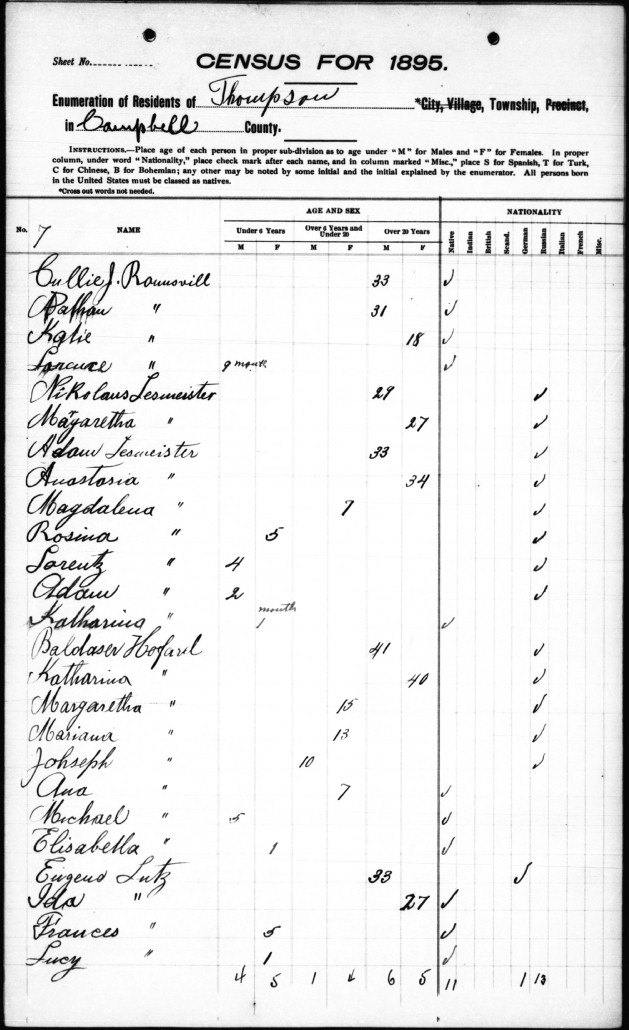 Sheet No.
CENSUS FOR 1895.
Enumeration of Residents of Thompson *City, Village, Township, Precinct,
in Campbell County.
INSTRUCTIONS.—Place age of each person in proper sub-division as to age under "M" for Males and "F" for Females. In proper
column, under word "Nationality," place check mark after each name, and in column marked "Misc.," place S for Spanish, T for Turk,
C for Chinese, B for Bohemian; any other may be noted by some initial and the initial explained by the enumerator. All persons born
in the United States must be classed as natives.
*Cross out words not needed.
AGE AND SEX NATIONALITY
No. 7 NAME Under 6 Years Over 6 Years and Under 20 Over 20 Years Native Indian British Scand. German Russian Italian French Misc.
M F M F M F
J. Rounsvill 33 ✓
" 31 ✓
Katie " 18 ✓
" 9 month ✓
Nikolaus Lesmeister 29 ✓
Magaretha " 27 ✓
Adam Lesmeister 33 ✓
Anastasia " 34 ✓
Magdalena " 7 ✓
Rosina " 5 ✓
Lorentz " 4 ✓
Adam " 2 ✓
Katharina " month 1 ✓
Baldaser 41 ✓
Katharina " 40 ✓
Margaretha " 15 ✓
Mariana " 13 ✓
Johseph " 10 ✓
Ana " 7 ✓
Michael " 5 ✓
Elisabetha " 1 ✓
Eugend Lutz 33 ✓
Ida " 27 ✓
Frances " 5 ✓
Lucy " 1 ✓
4 5 1 4 6 5 11 1 13